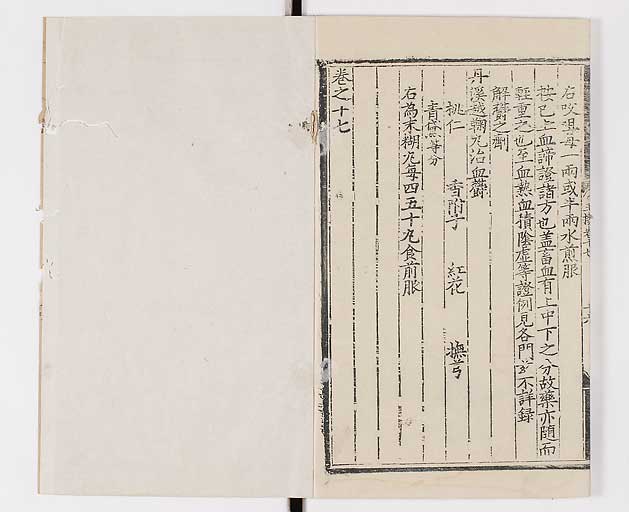 右㕮咀每一兩或半兩水煎服
按已上血諦證諸方也蓋畜血有上中下之分故藥亦隨而
輕重之也至血熱血積陰虛等證例見各門茲不詳録
解欝之劑
丹溪越鞠丸治血欝
桃仁 香附子 紅花 撫芎
青黛等分
右為末糊丸每四五十丸食前服
卷之十七